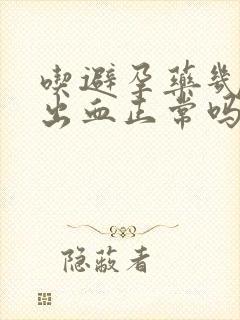 喫避孕藥幾
出血正常吗
隐蔽者